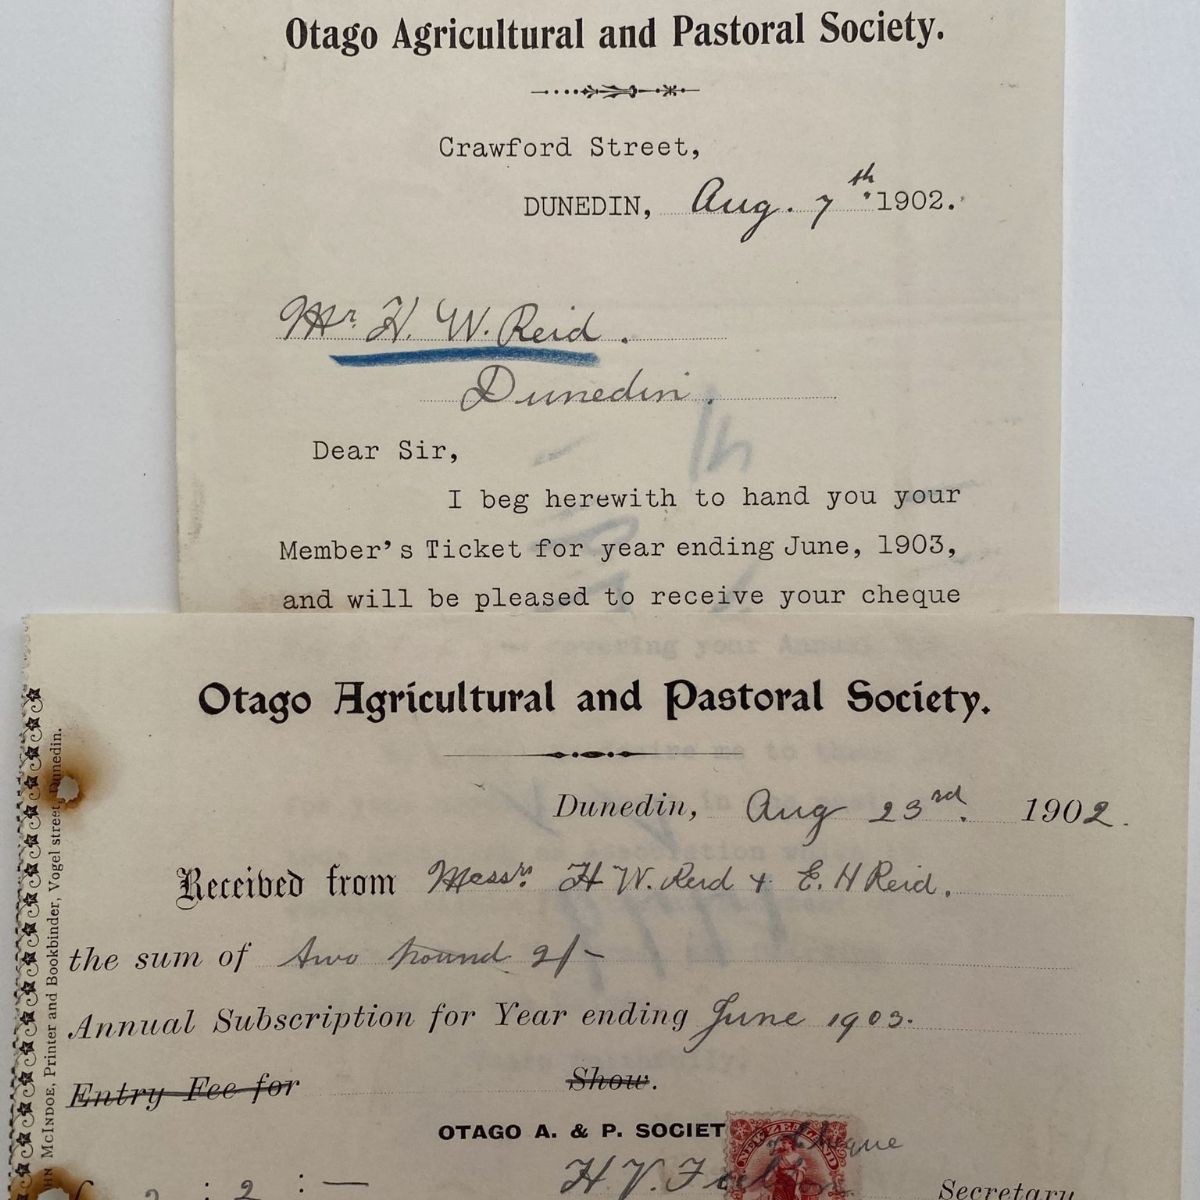 Otago Agricultural and Pastoral Society.
Crawford Street,
DUNEDIN, Aug. 7th 1902.
Mr. H. W. Reid.
Dunedin.
Dear Sir,
I beg herewith to hand you your
Member's Ticket for year ending June, 1903,
and will be pleased to receive your cheque
covering your Annual
Otago Agricultural and Pastoral Society.
Dunedin, Aug 23rd. 1902.
Received from Messrs. H W. Reid & E. H Reid.
the sum of two pound 2/-
Annual Subscription for Year ending June 1903.
Entry Fee for Show.
OTAGO A. & P. SOCIET
NEW ZEALAND
cheque
£ 2 : 2 : —
H. V.
Secretary
McINDOE, Printer and Bookbinder, Vogel street, Dunedin.